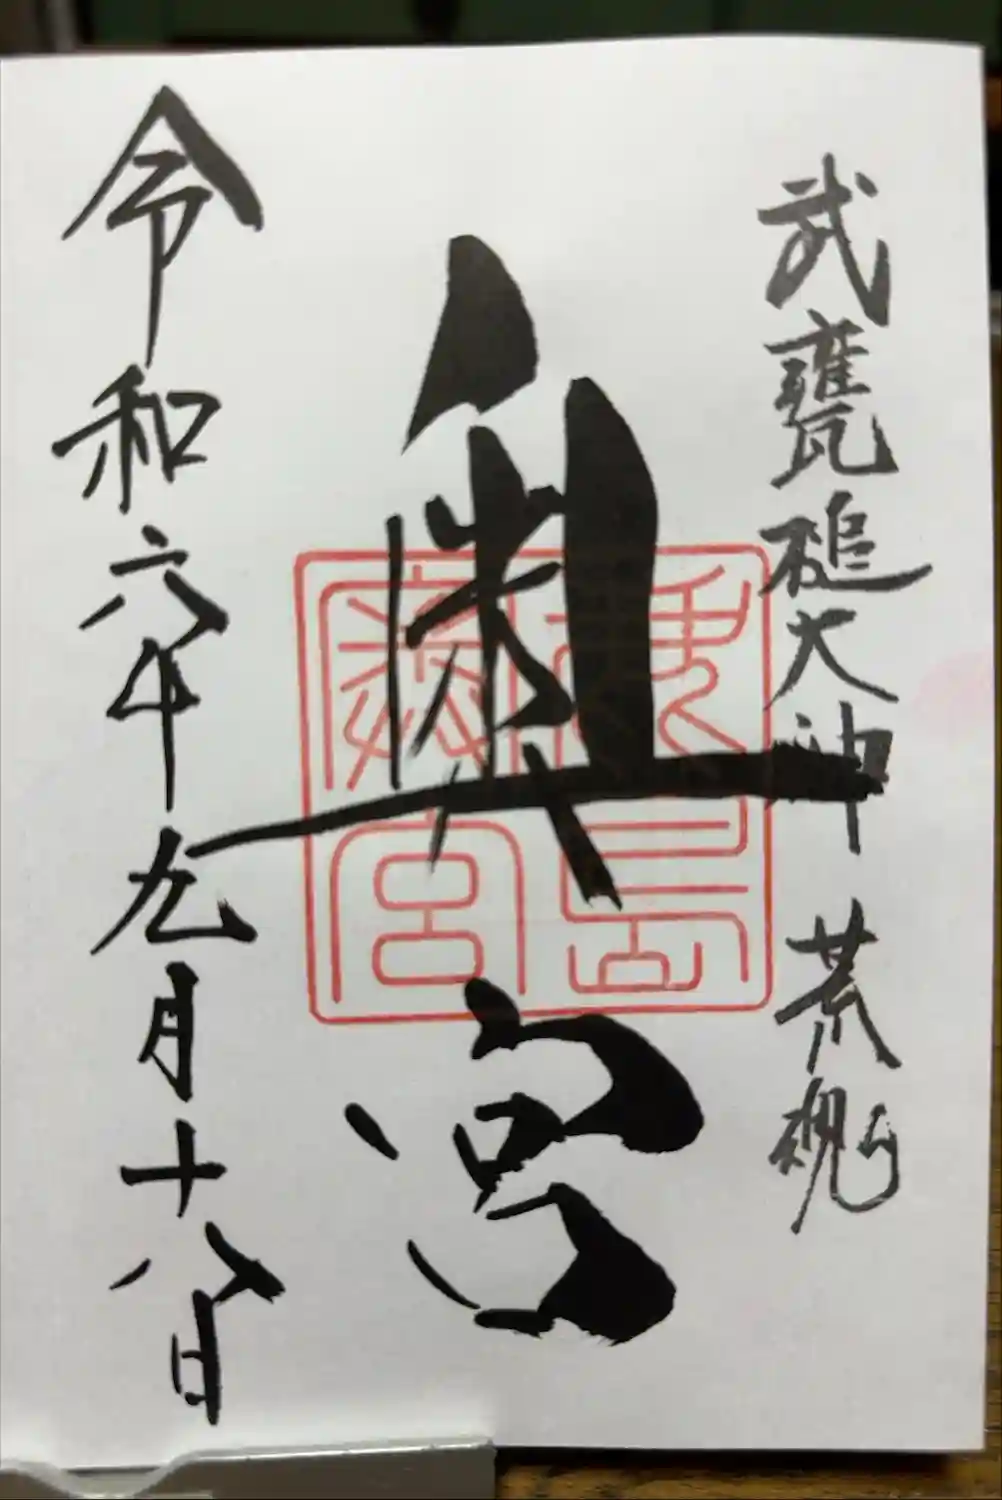 武甕槌大神 荒魂
奥宮
鹿島奥宮
令和六年九月十八日